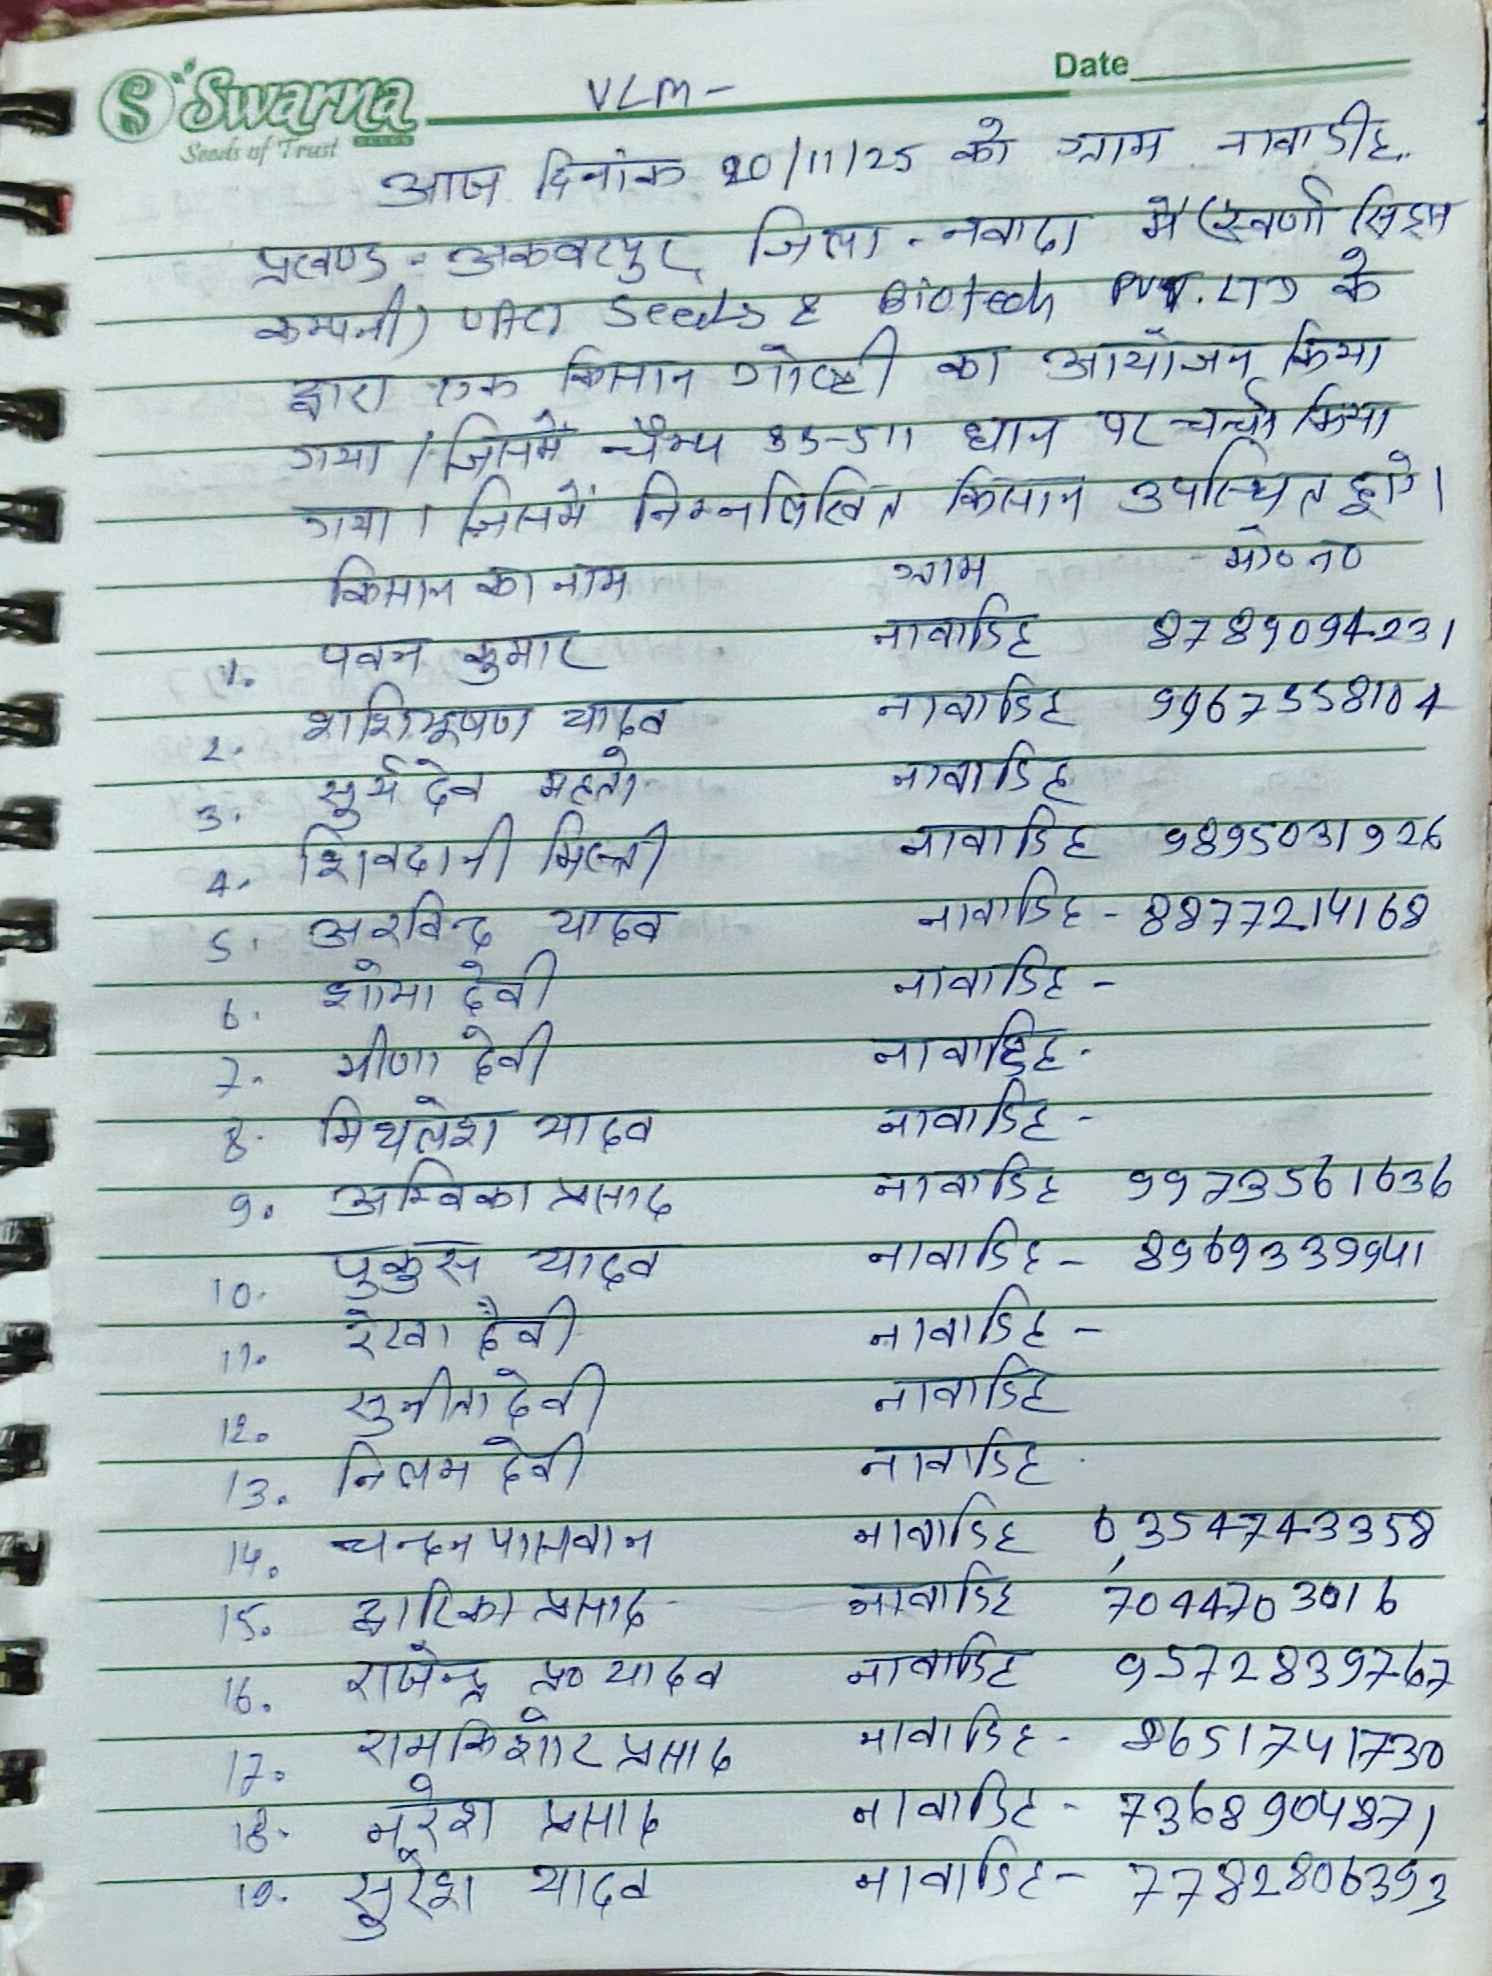 Swarna
Seeds of Trust
SEEDS
Date
VLM-
आज दिनांक 20/11/25 को ग्राम नावाडीह
प्रखण्ड - अकबरपुर जिला - नवादा में (स्वर्णा सिड्स
कम्पनी) Seeds & Biotech PVT. LTD के
द्वारा एक किसान गोष्ठी का आयोजन किया
गया। जिसमें चैम्प 85-511 धान पर चर्चा किया
गया। जिसमें निम्नलिखित किसान उपस्थित हुये।
किसान का नाम ग्राम मो० न०
1. पवन कुमार नावाडिह 8789094231
2. शशिभूषण यादव नावाडिह 9967558104
3. सुर्य देव महतो नावाडिह
4. शिवदानी मिस्त्री नावाडिह 9895031926
5. अरविन्द यादव नावाडिह - 8877214168
6. शोभा देवी नावाडिह -
7. मीणा देवी नावाडिह -
8. मिथलेश यादव नावाडिह -
9. अम्बिका प्रसाद नावाडिह 9973561636
10. यादव नावाडिह - 8969339941
11. रेखा देवी नावाडिह -
12. सुनीता देवी नावाडिह
13. निलम देवी नावाडिह
14. चन्दन पासवान नावाडिह 6354743358
15. द्वारिका प्रसाद नावाडिह 7044703016
16. राजेन्द्र प्र० यादव नावाडिह 9572839767
17. रामकिशोर प्रसाद नावाडिह - 8651741730
18. नूरेश प्रसाद नावाडिह - 7368904871
19. सुरेश यादव नावाडिह - 7782806393